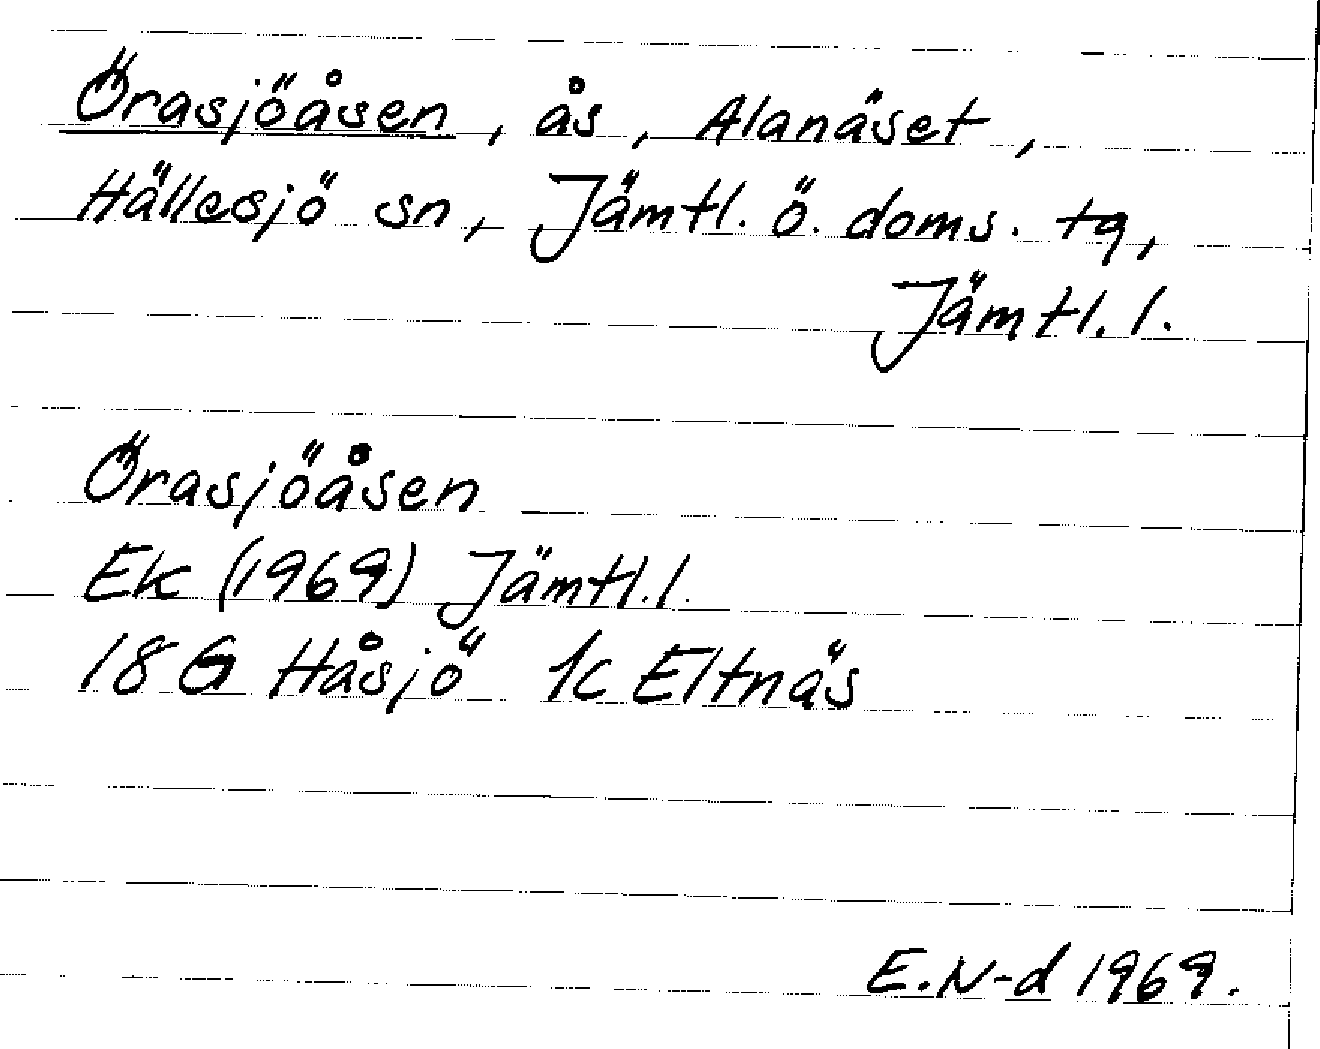 Örasjöåsen, ås, Alanäset,
Hällesjö sn, Jämtl. ö. doms. tg,
Jämtl. l.
Örasjöåsen
Ek (1969) Jämtl. l.
18 G Håsjö 1c Eltnäs
E.N-d 1969.